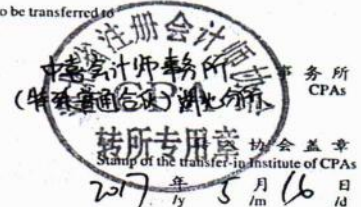 o be transferred to
注册会计师协
中喜会计师事务所 事务所
CPAs
(特殊普通合伙)湖北分所
转所专用章
协会盖章
Stamp of the transfer-in Institute of CPAs
2017 年 5 月 16 日
/y /m /d